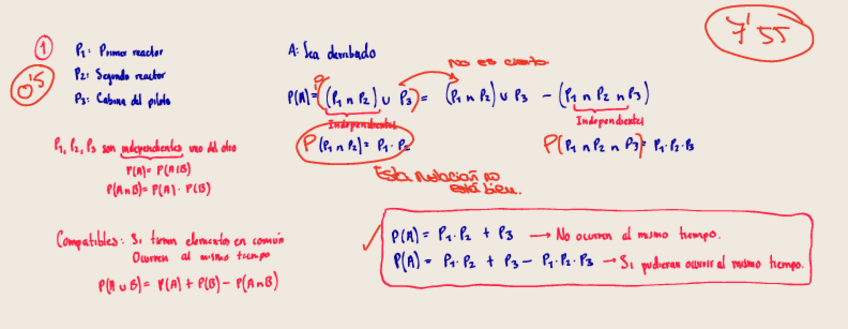 7'55
1
0'5
P₁: Primer reactor
P₂: Segundo reactor
P₃: Cabina del piloto
A: Sea derribado
no es cierto
P(A) = P((P₁ ∩ P₂) ∪ P₃) = (P₁ ∩ P₂) ∪ P₃ - (P₁ ∩ P₂ ∩ P₃)
Independientes
Independientes
P(P₁ ∩ P₂) = P₁ · P₂
P(P₁ ∩ P₂ ∩ P₃) = P₁ · P₂ · P₃
Esta notación no
está bien.
P₁, P₂, P₃ son independientes uno del otro
P(A) = P(A|B)
P(A∩B) = P(A) · P(B)
Compatibles: Si tienen elementos en común
Ocurren al mismo tiempo
P(A ∪ B) = P(A) + P(B) - P(A∩B)
✓
P(A) = P₁ · P₂ + P₃ → No ocurren al mismo tiempo.
P(A) = P₁ · P₂ + P₃ - P₁ · P₂ · P₃ → Si pudieran ocurrir al mismo tiempo.